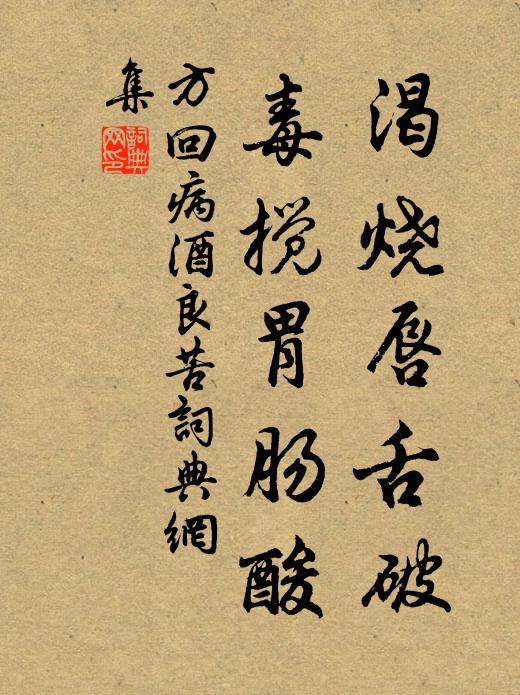 渴烧唇舌破
毒搅胃肠酸
方回病酒良苦詞典網
集
詞典網印